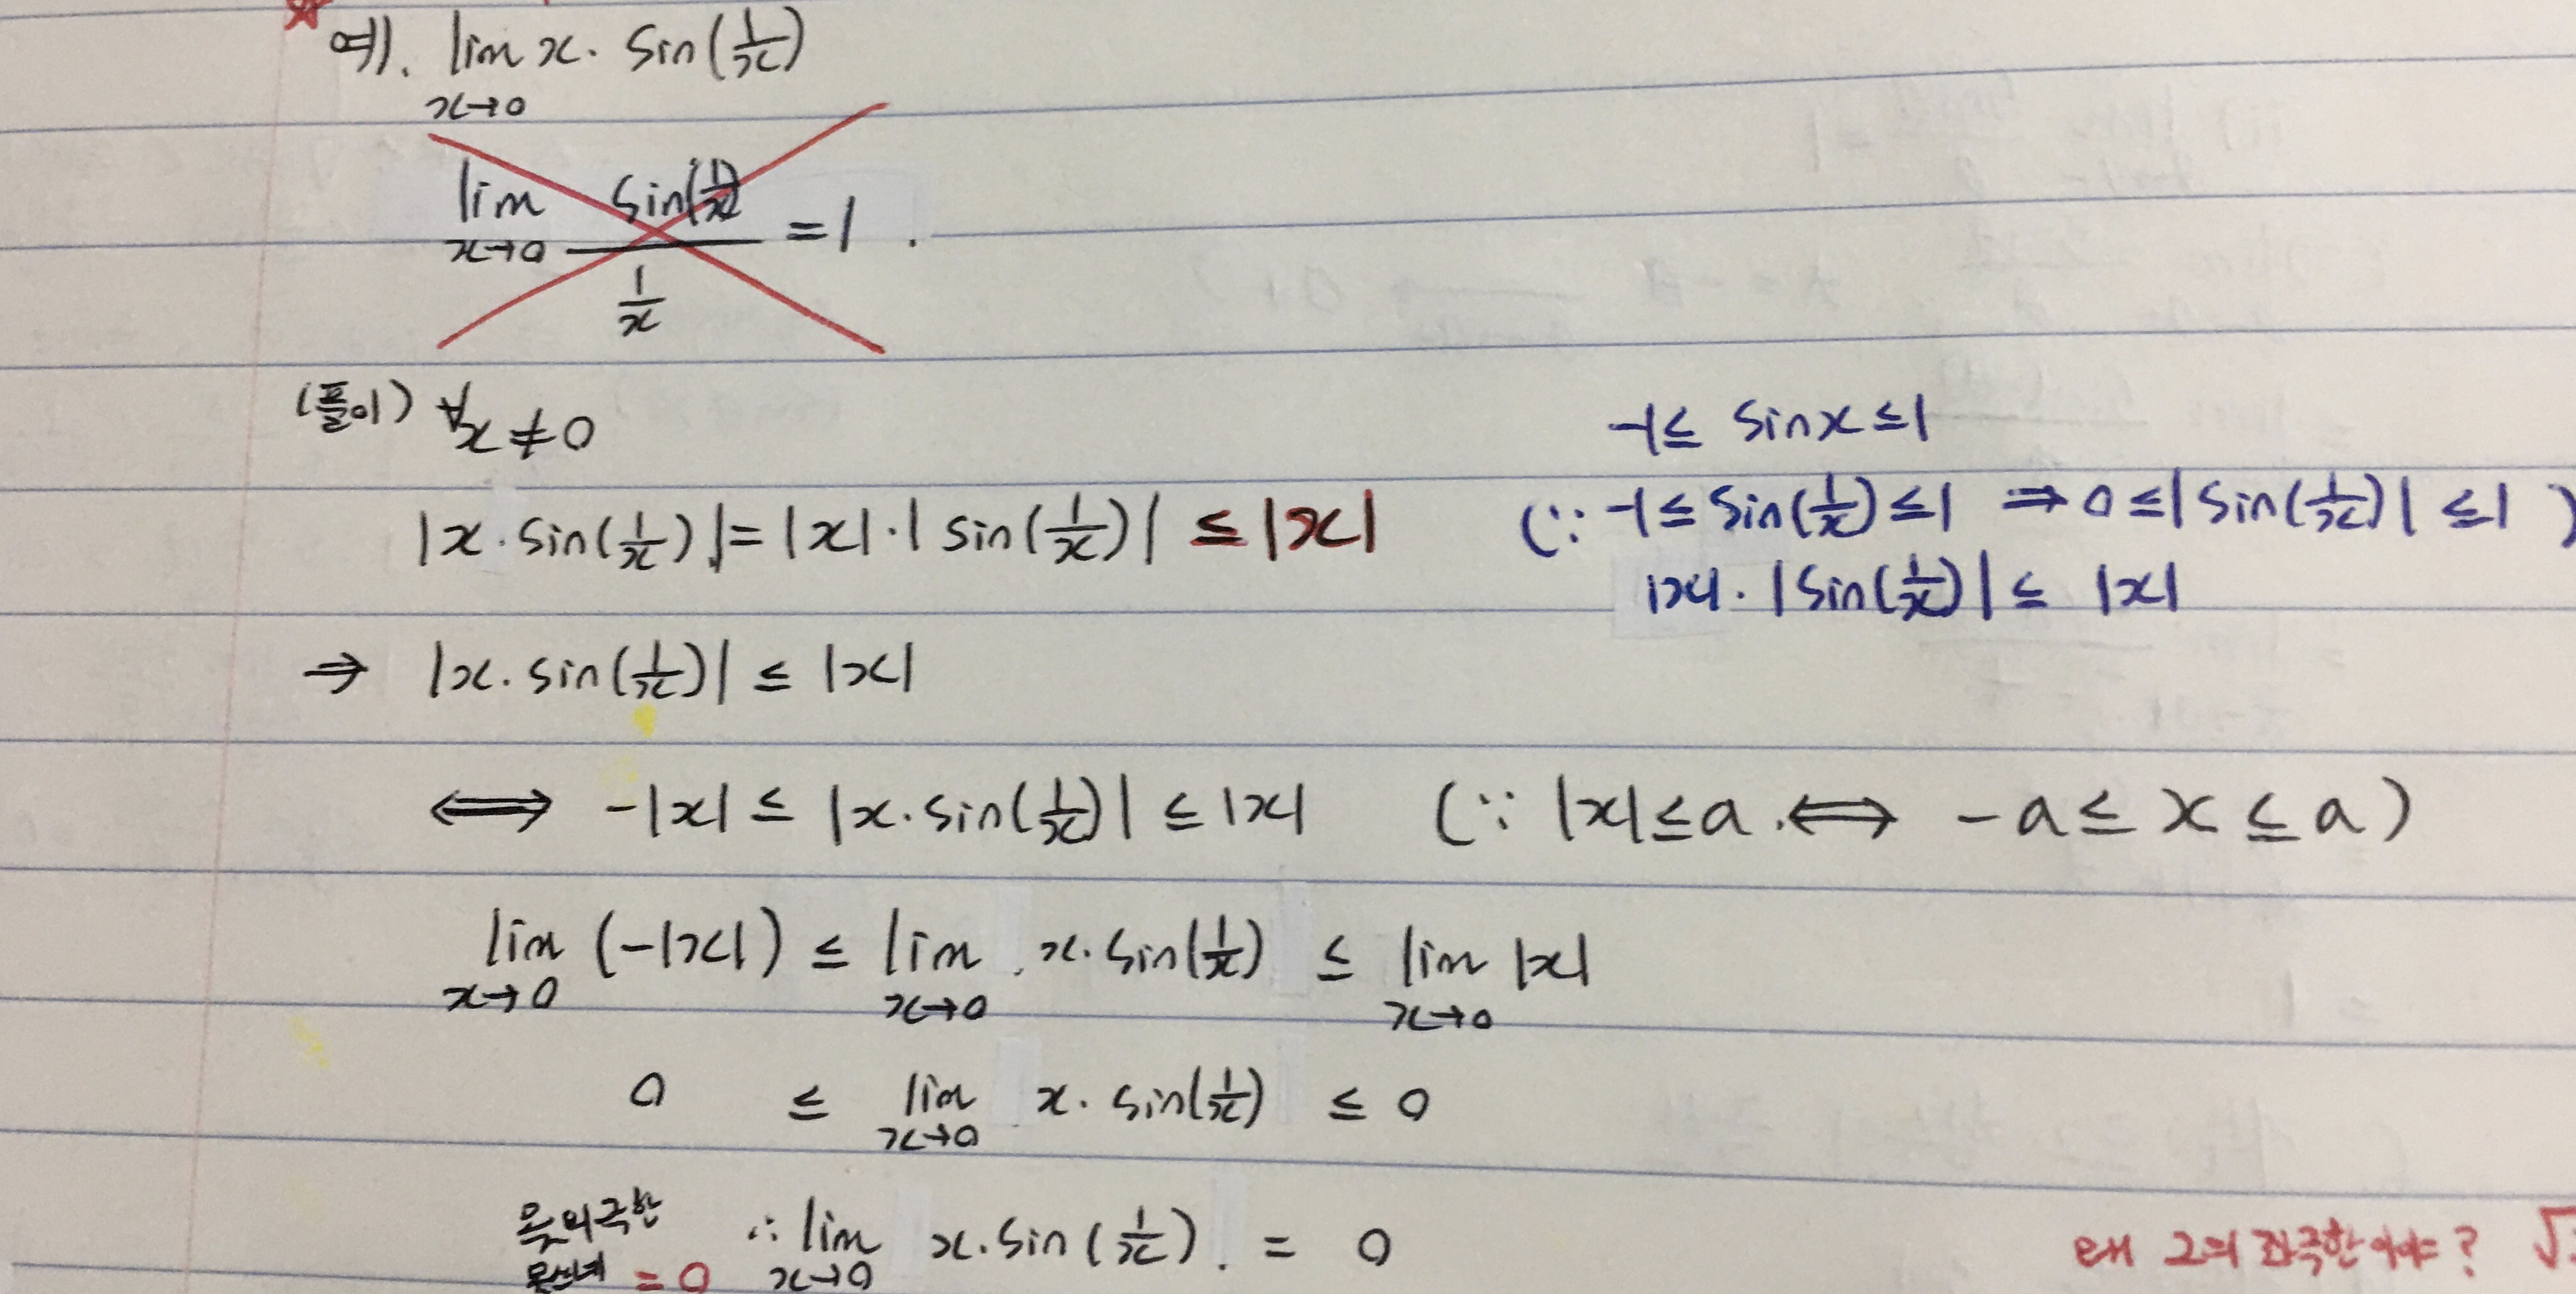 예). lim x→0 x · sin(1/x)
lim x→0 sin(1/x) / (1/x) = 1 .
(풀이) ∀x ≠ 0
-1 ≤ sinx ≤ 1
|x · sin(1/x)| = |x| · |sin(1/x)| ≤ |x| (∵ -1 ≤ sin(1/x) ≤ 1 ⇒ 0 ≤ |sin(1/x)| ≤ 1 )
|x| · |sin(1/x)| ≤ |x|
⇒ |x · sin(1/x)| ≤ |x|
⟺ -|x| ≤ |x · sin(1/x)| ≤ |x| (∵ |x| ≤ a ⟺ -a ≤ x ≤ a)
lim x→0 (-|x|) ≤ lim x→0 x · sin(1/x) ≤ lim x→0 |x|
0 ≤ lim x→0 x · sin(1/x) ≤ 0
∴ lim x→0 x · sin(1/x) = 0
= 0
왜 2의 좌극한이야?